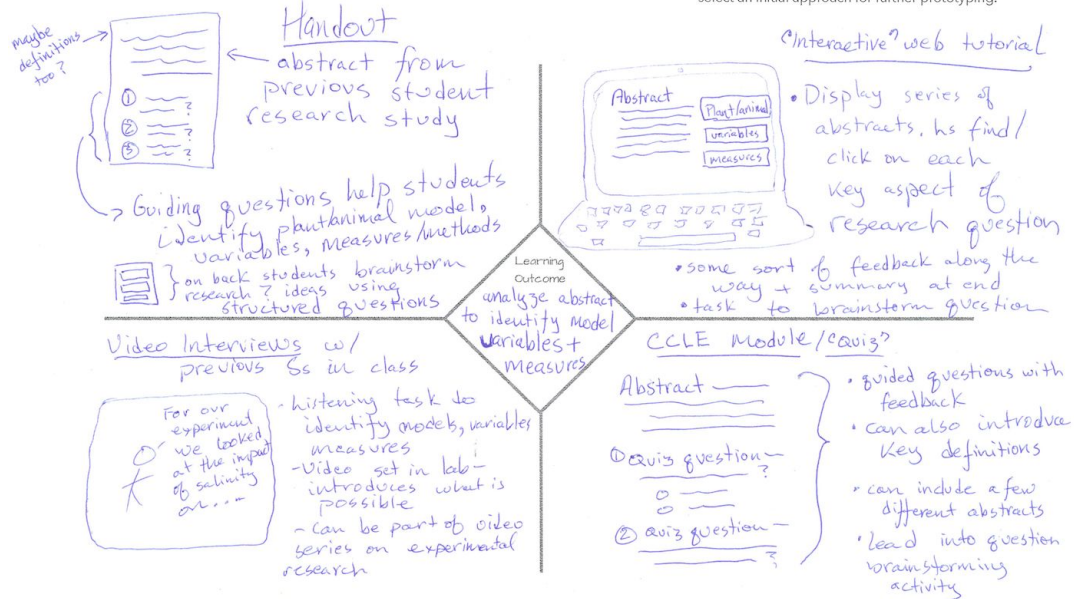 select an initial approach for further prototyping.
Handout
maybe
definitions
too?
abstract from
previous student
research study
①
?
②
?
③
?
Guiding questions help students
identify plant/animal model,
variables, measures/methods
on back students brainstorm
research ? ideas using
structured questions
"Interactive" web tutorial
Abstract
Plant/animal
variables
measures
• Display series of
abstracts, hs find/
click on each
key aspect of
research question
• some sort of feedback along the
way + summary at end
• task to brainstorm question
Learning
Outcome
analyze abstract
to identify model
variables +
measures
Video Interviews w/
previous Ss in class
For our
experiment
we looked
at the impact
of salinity
on....
- Listening task to
identify models, variables
measures
- Video set in lab -
introduces what is
possible
- Can be part of video
series on experimental
research
CCLE Module/"Quiz"
Abstract
① Quiz question
?
② Quiz question
?
• guided questions with
feedback
• can also introduce
key definitions
• can include a few
different abstracts
• lead into question
brainstorming
activity